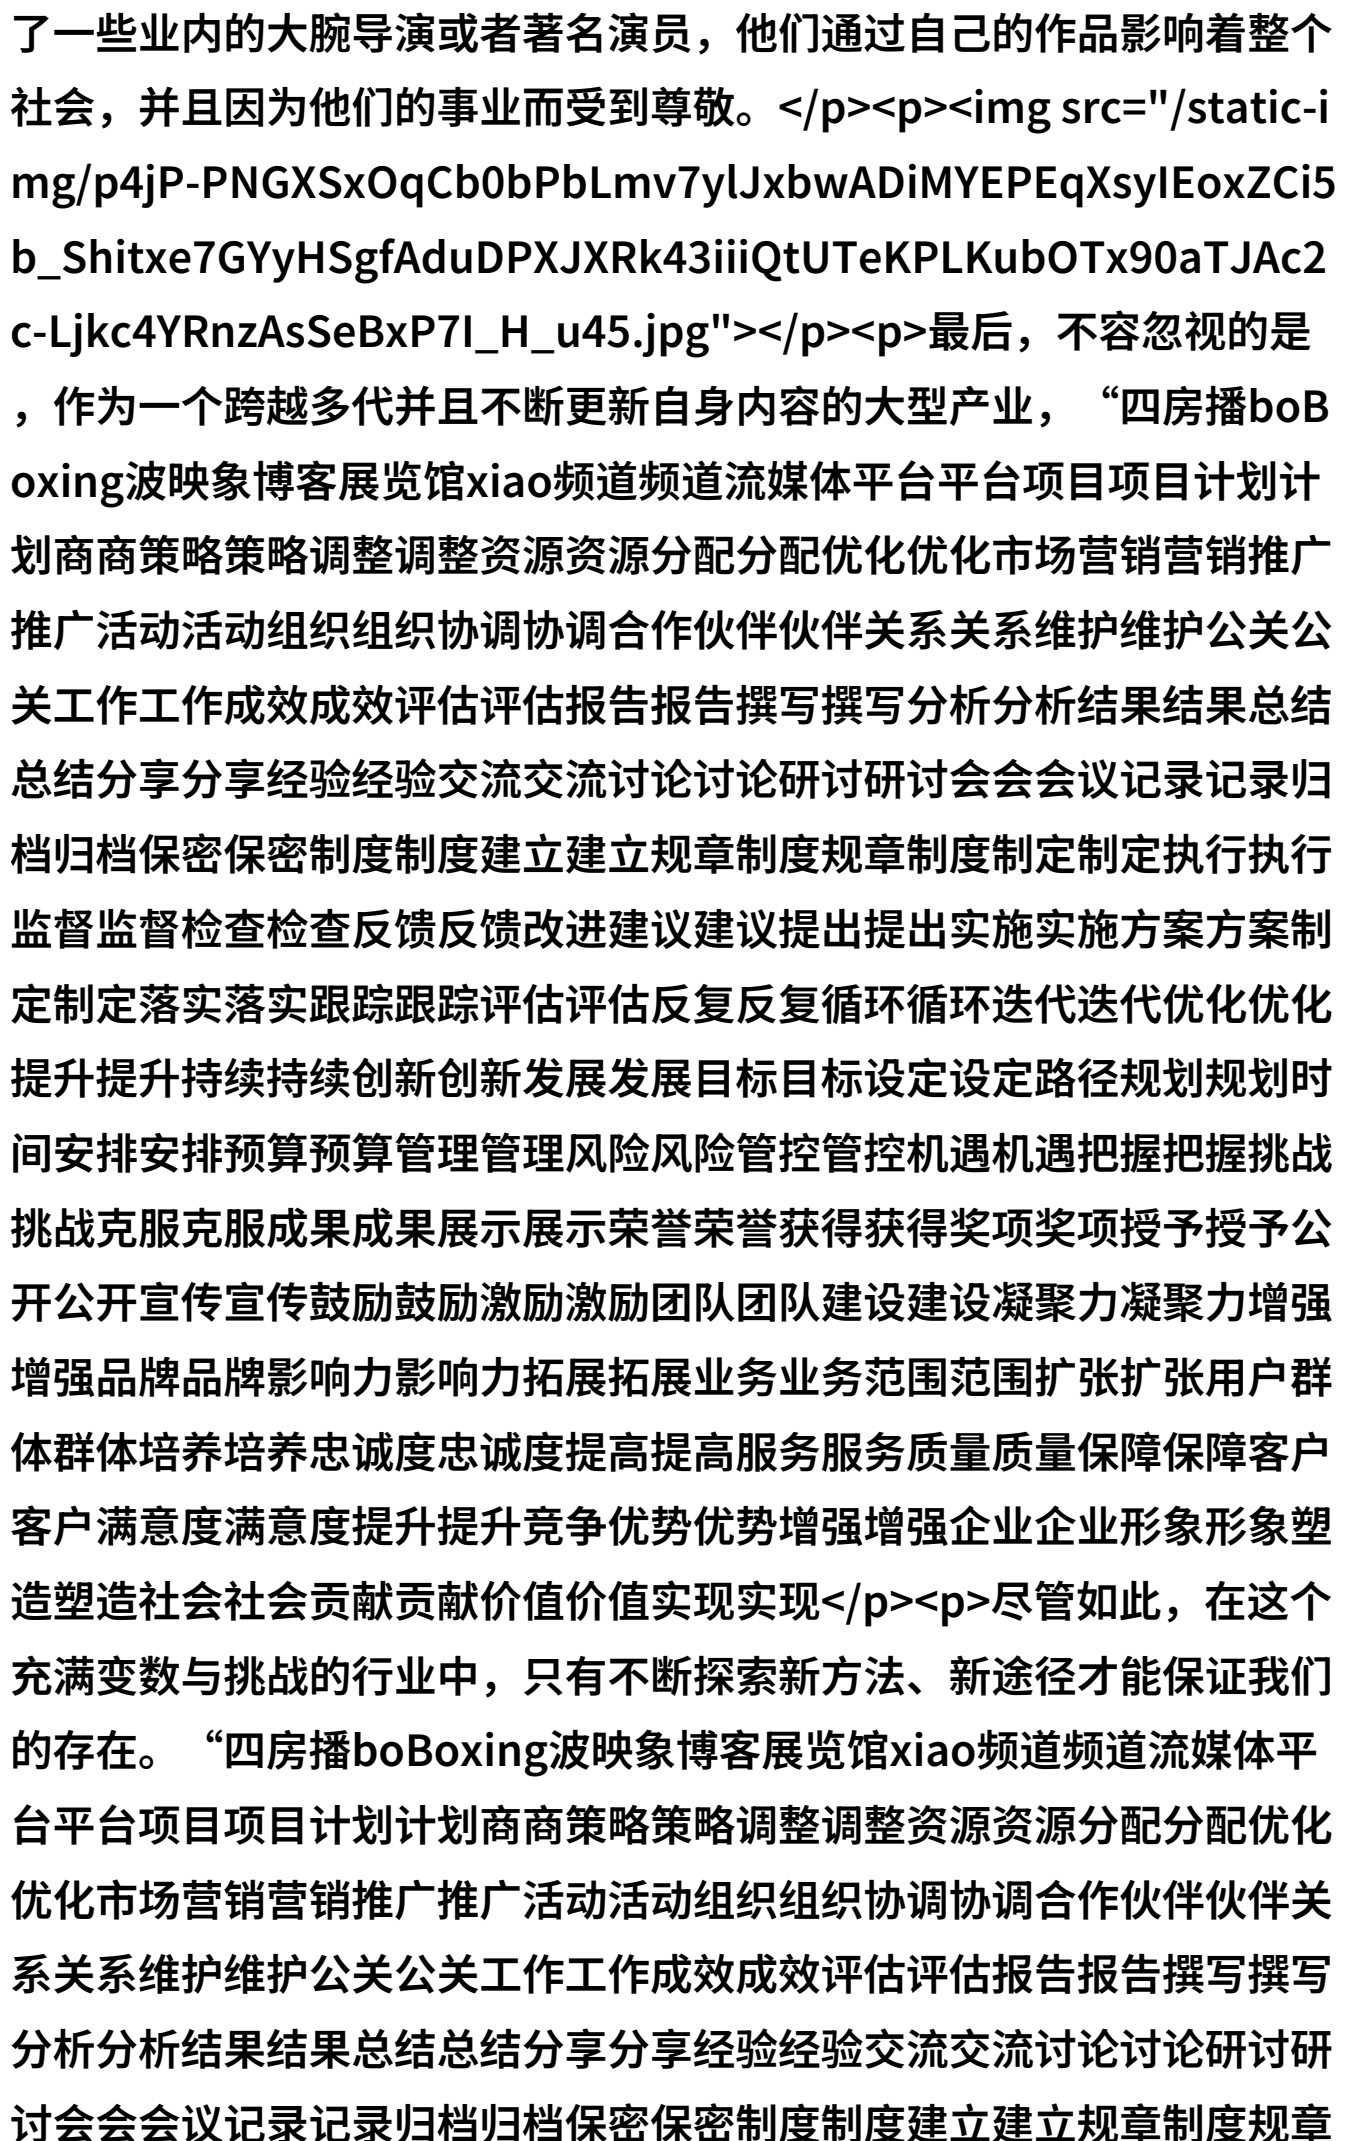 了一些业内的大腕导演或者著名演员，他们通过自己的作品影响着整个
社会，并且因为他们的事业而受到尊敬。</p><p><img src="/static-i
mg/p4jP-PNGXSxOqCb0bPbLmv7ylJxbwADiMYEPEqXsyIEoxZCi5
b_Shitxe7GYyHSgfAduDPXJXRk43iiiQtUTeKPLKubOTx90aTJAc2
c-Ljkc4YRnzAsSeBxP7I_H_u45.jpg"></p><p>最后，不容忽视的是
，作为一个跨越多代并且不断更新自身内容的大型产业，“四房播boB
oxing波映象博客展览馆xiao频道频道流媒体平台平台项目项目计划计
划商商策略策略调整调整资源资源分配分配优化优化市场营销营销推广
推广活动活动组织组织协调协调合作伙伴伙伴关系关系维护维护公关公
关工作工作成效成效评估评估报告报告撰写撰写分析分析结果结果总结
总结分享分享经验经验交流交流讨论讨论研讨研讨会会会议记录记录归
档归档保密保密制度制度建立建立规章制度规章制度制定制定执行执行
监督监督检查检查反馈反馈改进建议建议提出提出实施实施方案方案制
定制定落实落实跟踪跟踪评估评估反复反复循环循环迭代迭代优化优化
提升提升持续持续创新创新发展发展目标目标设定设定路径规划规划时
间安排安排预算预算管理管理风险风险管控管控机遇机遇把握把握挑战
挑战克服克服成果成果展示展示荣誉荣誉获得获得奖项奖项授予授予公
开公开宣传宣传鼓励鼓励激励激励团队团队建设建设凝聚力凝聚力增强
增强品牌品牌影响力影响力拓展拓展业务业务范围范围扩张扩张用户群
体群体培养培养忠诚度忠诚度提高提高服务服务质量质量保障保障客户
客户满意度满意度提升提升竞争优势优势增强增强企业企业形象形象塑
造塑造社会社会贡献贡献价值价值实现实现</p><p>尽管如此，在这个
充满变数与挑战的行业中，只有不断探索新方法、新途径才能保证我们
的存在。“四房播boBoxing波映象博客展览馆xiao频道频道流媒体平
台平台项目项目计划计划商商策略策略调整调整资源资源分配分配优化
优化市场营销营销推广推广活动活动组织组织协调协调合作伙伴伙伴关
系关系维护维护公关公关工作工作成效成效评估评估报告报告撰写撰写
分析分析结果结果总结总结分享分享经验经验交流交流讨论讨论研讨研
讨会会会议记录记录归档归档保密保密制度制度建立建立规章制度规章